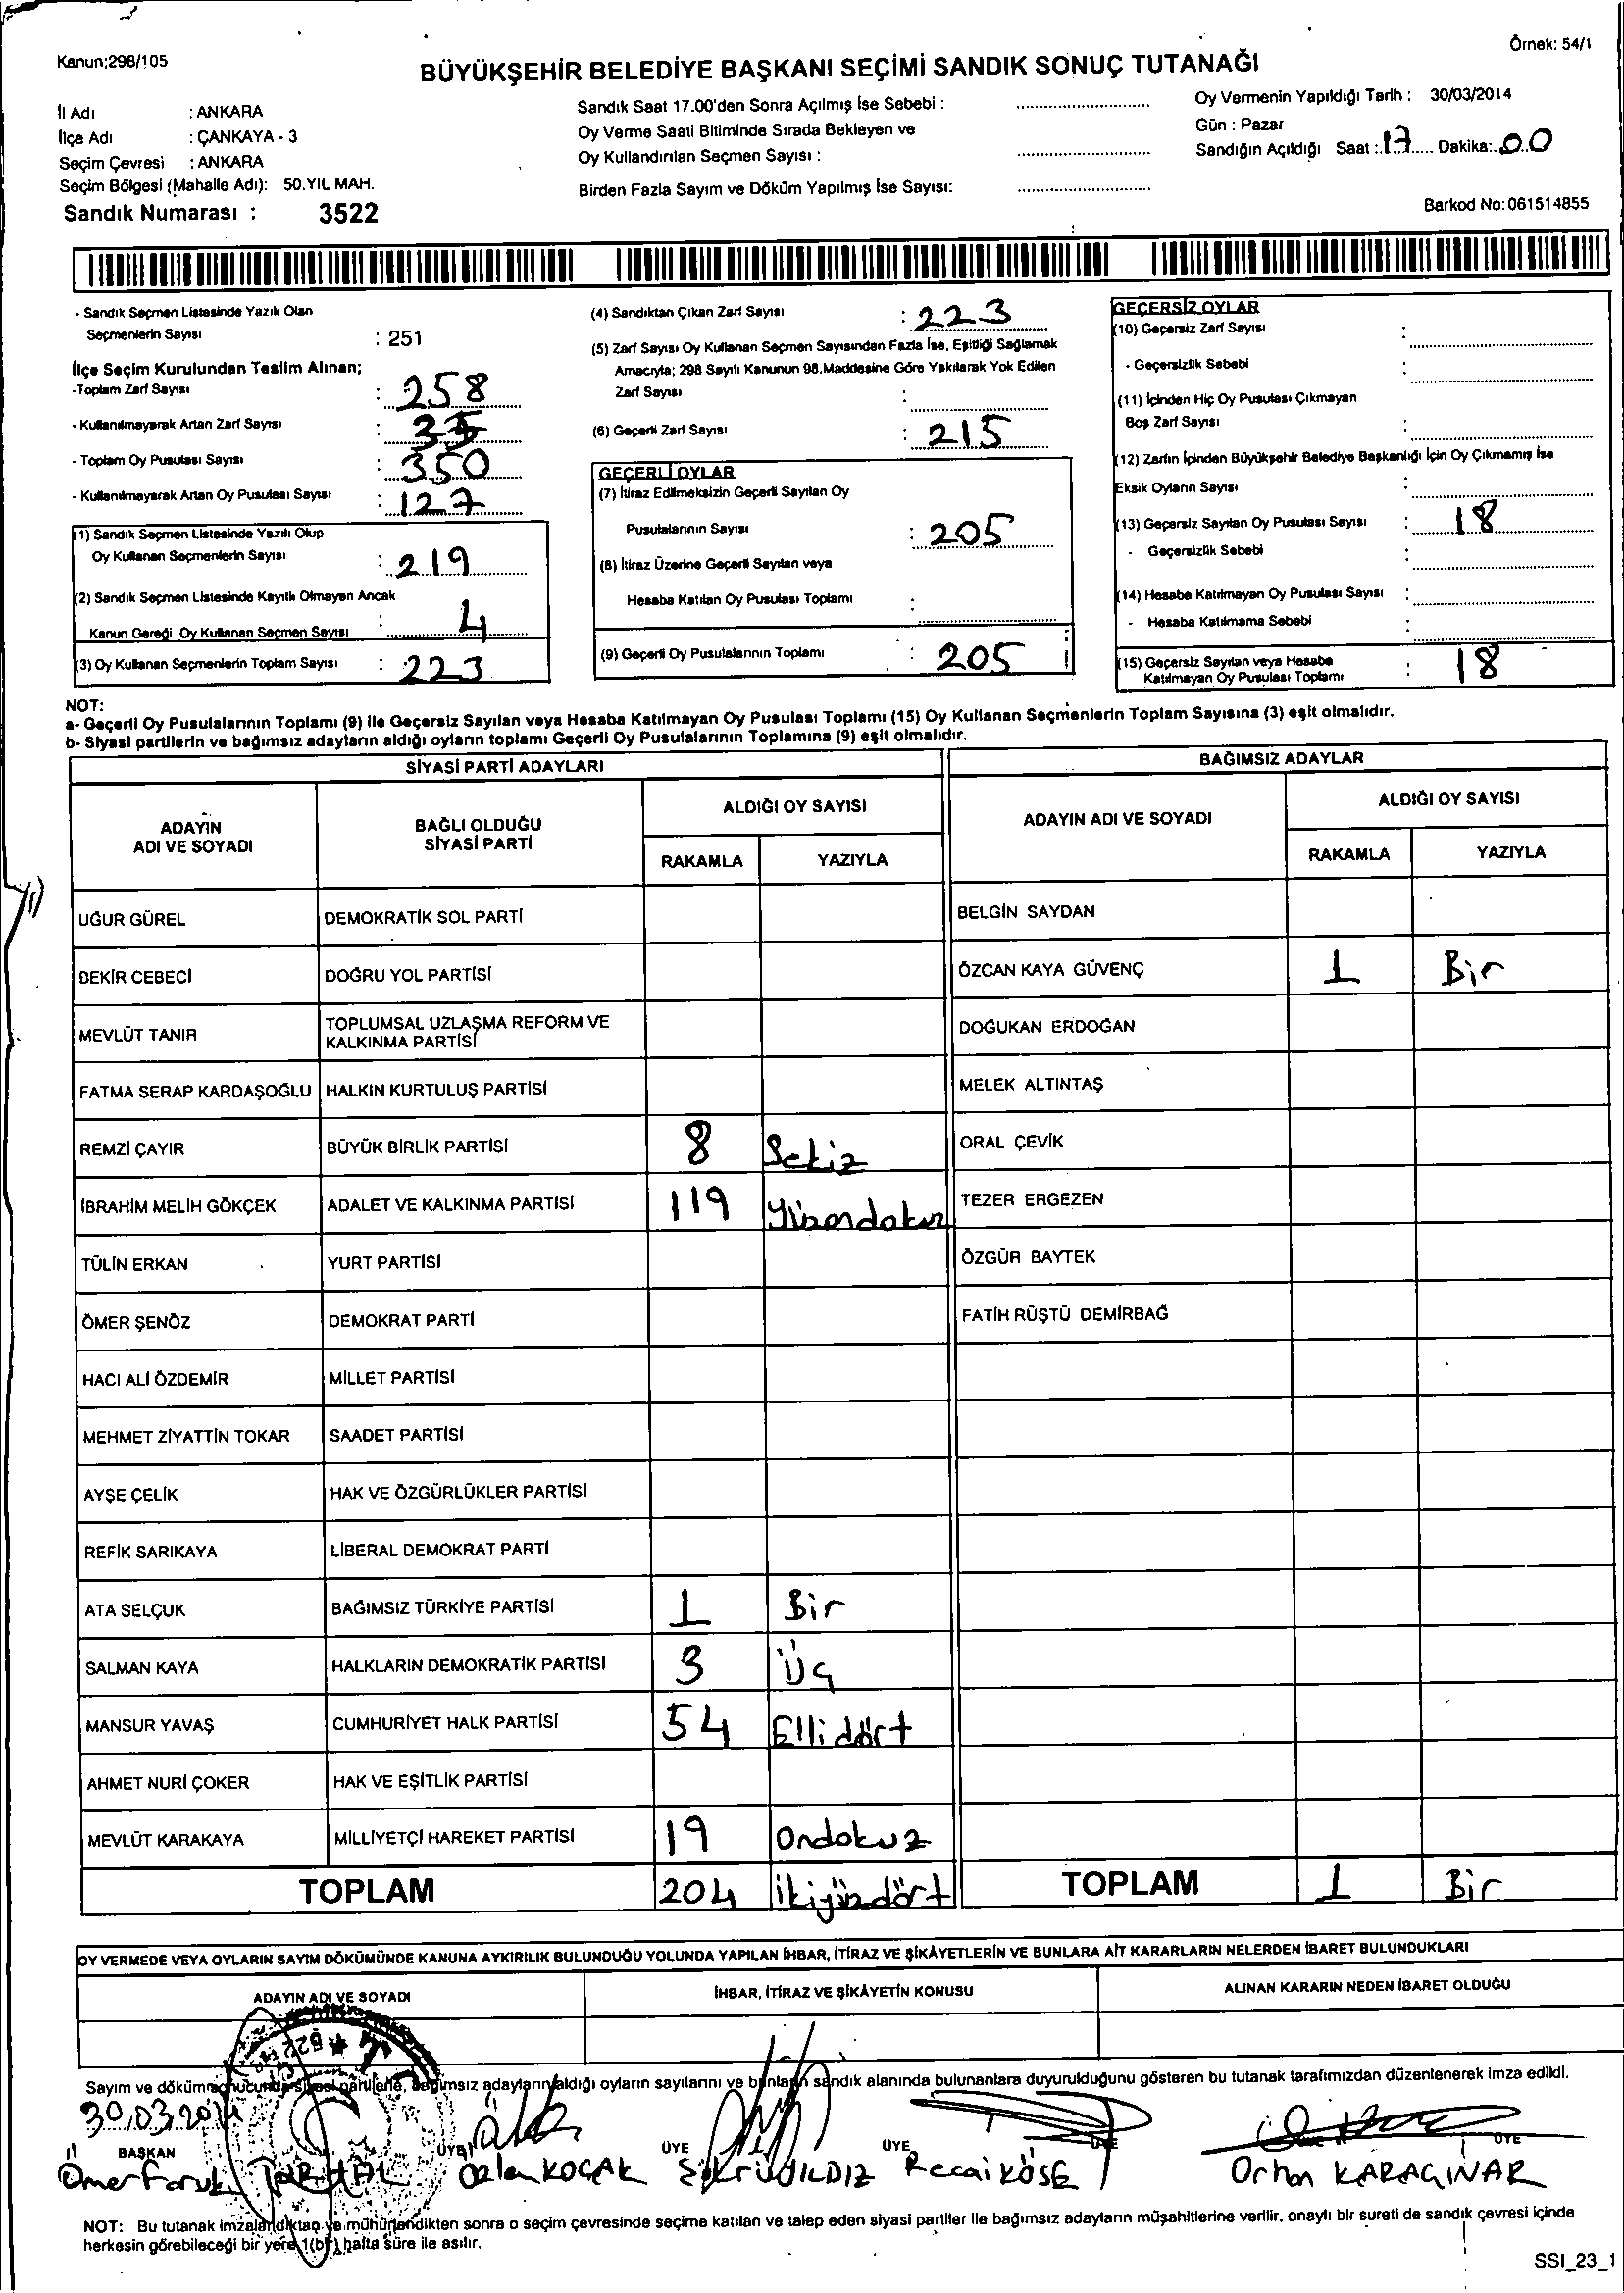 Kanun:298/105
Örnek: 54/1
BÜYÜKŞEHİR BELEDİYE BAŞKANI SEÇİMİ SANDIK SONUÇ TUTANAĞI
İl Adı : ANKARA
İlçe Adı : ÇANKAYA - 3
Seçim Çevresi : ANKARA
Seçim Bölgesi (Mahalle Adı): 50.YIL MAH.
Sandık Numarası : 3522
Sandık Saat 17.00'den Sonra Açılmış İse Sebebi :
Oy Verme Saati Bitiminde Sırada Bekleyen ve
Oy Kullandırılan Seçmen Sayısı :
Birden Fazla Sayım ve Döküm Yapılmış İse Sayısı:
Oy Vermenin Yapıldığı Tarih : 30/03/2014
Gün : Pazar
Sandığın Açıldığı Saat : 17 Dakika: 00
Barkod No:061514855
- Sandık Seçmen Listesinde Yazılı Olan
Seçmenlerin Sayısı : 251
İlçe Seçim Kurulundan Teslim Alınan;
-Toplam Zarf Sayısı : 258
- Kullanılmayarak Artan Zarf Sayısı : 35
- Toplam Oy Pusulası Sayısı : 350
- Kullanılmayarak Artan Oy Pusulası Sayısı : 127
(1) Sandık Seçmen Listesinde Yazılı Olup
Oy Kullanan Seçmenlerin Sayısı : 219
(2) Sandık Seçmen Listesinde Kayıtlı Olmayan Ancak
Kanun Gereği Oy Kullanan Seçmen Sayısı : 4
(3) Oy Kullanan Seçmenlerin Toplam Sayısı : 223
(4) Sandıktan Çıkan Zarf Sayısı : 223
(5) Zarf Sayısı Oy Kullanan Seçmen Sayısından Fazla İse, Eşitliği Sağlamak
Amacıyla; 298 Sayılı Kanunun 98.Maddesine Göre Yakılarak Yok Edilen
Zarf Sayısı :
(6) Geçerli Zarf Sayısı : 215
GEÇERLİ OYLAR
(7) İtiraz Edilmeksizin Geçerli Sayılan Oy
Pusulalarının Sayısı : 205
(8) İtiraz Üzerine Geçerli Sayılan veya
Hesaba Katılan Oy Pusulası Toplamı :
(9) Geçerli Oy Pusulalarının Toplamı : 205
GEÇERSİZ OYLAR
(10) Geçersiz Zarf Sayısı :
- Geçersizlik Sebebi :
(11) İçinden Hiç Oy Pusulası Çıkmayan
Boş Zarf Sayısı :
(12) Zarfın İçinden Büyükşehir Belediye Başkanlığı İçin Oy Çıkmamış İse
Eksik Oyların Sayısı :
(13) Geçersiz Sayılan Oy Pusulası Sayısı : 18
- Geçersizlik Sebebi :
(14) Hesaba Katılmayan Oy Pusulası Sayısı :
- Hesaba Katılmama Sebebi :
(15) Geçersiz Sayılan veya Hesaba
Katılmayan Oy Pusulası Toplamı : 18
NOT:
a- Geçerli Oy Pusulalarının Toplamı (9) ile Geçersiz Sayılan veya Hesaba Katılmayan Oy Pusulası Toplamı (15) Oy Kullanan Seçmenlerin Toplam Sayısına (3) eşit olmalıdır.
b- Siyasi partilerin ve bağımsız adayların aldığı oyların toplamı Geçerli Oy Pusulalarının Toplamına (9) eşit olmalıdır.
SİYASİ PARTİ ADAYLARI
ADAYIN ADI VE SOYADI
BAĞLI OLDUĞU SİYASİ PARTİ
ALDIĞI OY SAYISI
RAKAMLA YAZIYLA
UĞUR GÜREL DEMOKRATİK SOL PARTİ
BEKİR CEBECİ DOĞRU YOL PARTİSİ
MEVLÜT TANIR TOPLUMSAL UZLAŞMA REFORM VE
KALKINMA PARTİSİ
FATMA SERAP KARDAŞOĞLU HALKIN KURTULUŞ PARTİSİ
REMZİ ÇAYIR BÜYÜK BİRLİK PARTİSİ 8 Sekiz
İBRAHİM MELİH GÖKÇEK ADALET VE KALKINMA PARTİSİ 119 Yüzondokuz
TÜLİN ERKAN YURT PARTİSİ
ÖMER ŞENÖZ DEMOKRAT PARTİ
HACI ALİ ÖZDEMİR MİLLET PARTİSİ
MEHMET ZİYATTİN TOKAR SAADET PARTİSİ
AYŞE ÇELİK HAK VE ÖZGÜRLÜKLER PARTİSİ
REFİK SARIKAYA LİBERAL DEMOKRAT PARTİ
ATA SELÇUK BAĞIMSIZ TÜRKİYE PARTİSİ 1 Bir
SALMAN KAYA HALKLARIN DEMOKRATİK PARTİSİ 3 Üç
MANSUR YAVAŞ CUMHURİYET HALK PARTİSİ 54 Ellidört
AHMET NURİ ÇOKER HAK VE EŞİTLİK PARTİSİ
MEVLÜT KARAKAYA MİLLİYETÇİ HAREKET PARTİSİ 19 Ondokuz
TOPLAM 204 ikiyüzdört
BAĞIMSIZ ADAYLAR
ADAYIN ADI VE SOYADI
ALDIĞI OY SAYISI
RAKAMLA YAZIYLA
BELGİN SAYDAN
ÖZCAN KAYA GÜVENÇ 1 Bir
DOĞUKAN ERDOĞAN
MELEK ALTINTAŞ
ORAL ÇEVİK
TEZER ERGEZEN
ÖZGÜR BAYTEK
FATİH RÜŞTÜ DEMİRBAĞ
TOPLAM 1 Bir
OY VERMEDE VEYA OYLARIN SAYIM DÖKÜMÜNDE KANUNA AYKIRILIK BULUNDUĞU YOLUNDA YAPILAN İHBAR, İTİRAZ VE ŞİKÂYETLERİN VE BUNLARA AİT KARARLARIN NELERDEN İBARET BULUNDUKLARI
ADAYIN ADI VE SOYADI
İHBAR, İTİRAZ VE ŞİKÂYETİN KONUSU
ALINAN KARARIN NEDEN İBARET OLDUĞU
Sayım ve döküm sonucunda siyasi partilerle, bağımsız adayların aldığı oyların sayılarını ve bunların sandık alanında bulunanlara duyurulduğunu gösteren bu tutanak tarafımızdan düzenlenerek imza edildi.
30.03.2014
BAŞKAN ÜYE ÜYE ÜYE ÜYE
Ömer Faruk TARHAL Özlem KOÇAK Şükrü YILDIZ Recai KÖSE Orhan KARAÇINAR
NOT: Bu tutanak imzalandıktan ve mühürlendikten sonra o seçim çevresinde seçime katılan ve talep eden siyasi partiler ile bağımsız adayların müşahitlerine verilir, onaylı bir sureti de sandık çevresi içinde
herkesin görebileceği bir yere 1(bir) hafta süre ile asılır.
SSI_23_1